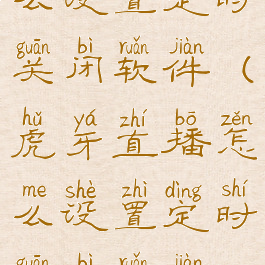 么设置定时
guān bì ruǎn jiàn
关闭软件（
hǔ yá zhí bō zěn
虎牙直播怎
me shè zhì dìng shí
么设置定时
guān bì ruǎn jiàn